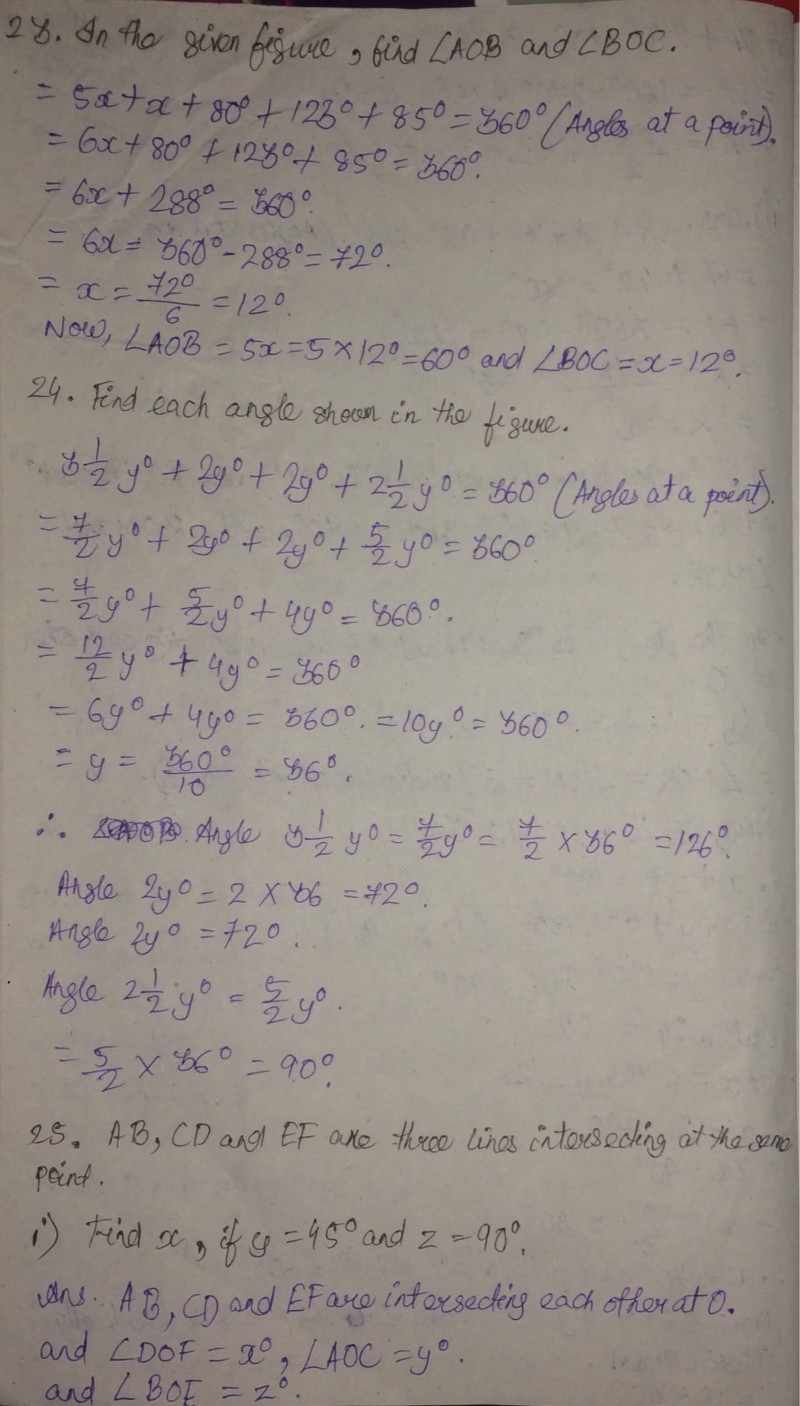 23. In the given figure, find ∠AOB and ∠BOC.
= 5x + x + 80° + 123° + 85° = 360° (Angles at a point).
= 6x + 80° + 123° + 85° = 360°.
= 6x + 288° = 360°.
= 6x = 360° - 288° = 72°.
= x = 72°/6 = 12°.
Now, ∠AOB = 5x = 5 × 12° = 60° and ∠BOC = x = 12°.
24. Find each angle shown in the figure.
3 1/2 y° + 2y° + 2y° + 2 1/2 y° = 360° (Angles at a point).
= 7/2 y° + 2y° + 2y° + 5/2 y° = 360°
= 7/2 y° + 5/2 y° + 4y° = 360°.
= 12/2 y° + 4y° = 360°
= 6y° + 4y° = 360°. = 10y° = 360°.
= y = 360°/10 = 36°.
∴ Angle 3 1/2 y° = 7/2 y° = 7/2 × 36° = 126°.
Angle 2y° = 2 × 36 = 72°.
Angle 2y° = 72°.
Angle 2 1/2 y° = 5/2 y°.
= 5/2 × 36° = 90°.
25. AB, CD and EF are three lines intersecting at the same
point.
i) Find x, if y = 45° and z = 90°.
Ans. AB, CD and EF are intersecting each other at O.
and ∠DOF = x°, ∠AOC = y°.
and ∠BOE = z°.